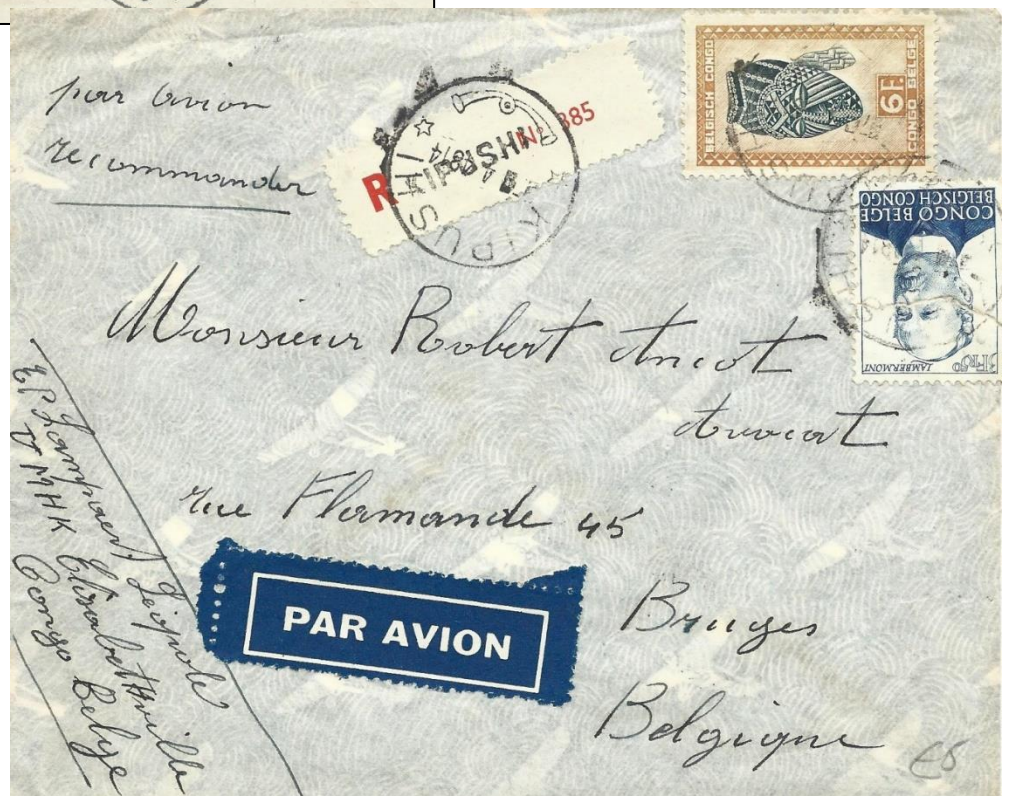 par avion
recommander
R KIPUSHI No 385
KIPUSHI
BELGISCH CONGO
6 F.
CONGO BELGE
CONGO BELGE
BELGISCH CONGO
LAMBERMONT
Monsieur Robert Ancot
Avocat
rue Flamande 45
Bruges
Belgique
PAR AVION
Léopold
UMHK Elisabethville
Congo Belge